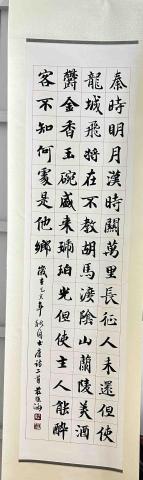 秦時明月漢時關萬里長征人未還但使
龍城飛將在不教胡馬渡陰山蘭陵美酒
鬱金香玉碗盛来琥珀光但使主人能醉
客不知何處是他鄉
唐詩二首